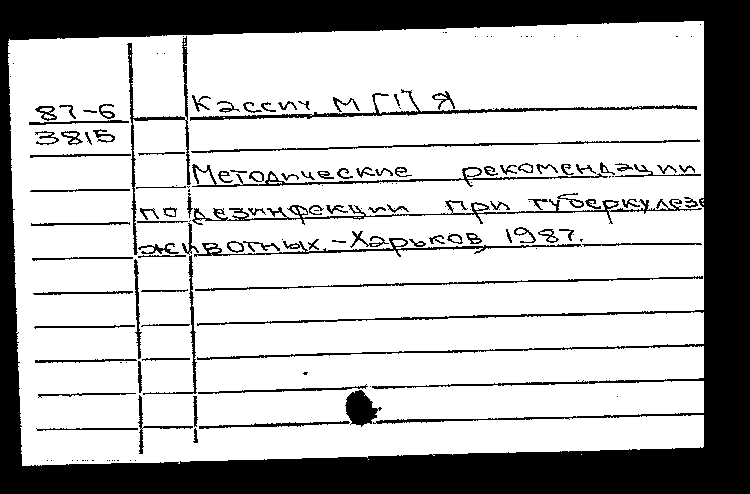 87-6
3815
Кассич
Методические рекомендации
по дезинфекции при туберкулезе
животных.-Харьков, 1987.